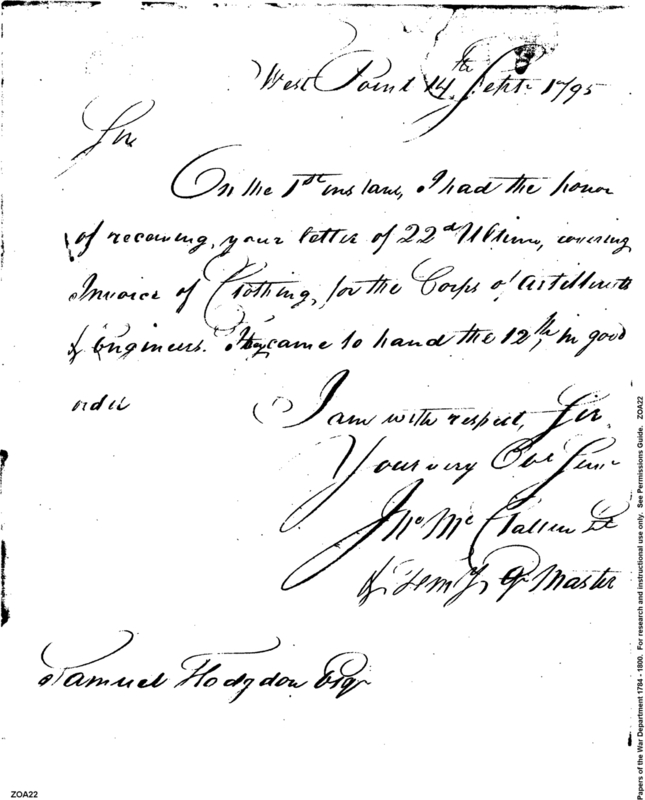 West Point 14th Septr 1795
Sir
On the 1st instant, I had the honor
of receiving, your letter of 22d Ultimo, covering
Invoice of Clothing, for the Corps of Artillerists
& Engineers. They came to hand the 12th, in good
order
I am with respect, Sir
Your very Obt Servt
Jno Mc Clallen Lt
& Temy Qr Master
Samuel Hodgdon Esqr
Papers of the War Department 1784 - 1800. For research and instructional use only. See Permissions Guide. ZOA22
ZOA22